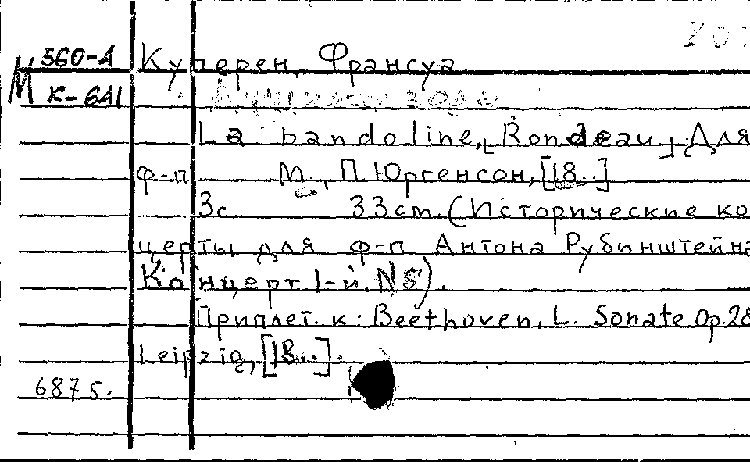 560-А Куперен, Франсуа
М К-641
La bandoline, [Rondeau] Для
ф-п М., П. Юргенсон, [18..]
3с 33см. (Исторические ко
церты для ф-п Антона Рубинштейна
Концерт 1-й. №8).
Приплет. к: Beethoven, L. Sonate Op. 28
Leipzig, [18..].
6875.